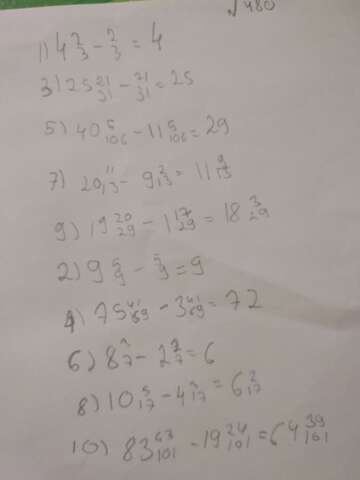 √480
1) 4 2/3 - 2/3 = 4
3) 25 21/31 - 21/31 = 25
5) 40 5/106 - 11 5/106 = 29
7) 20 11/13 - 9 2/13 = 11 9/13
9) 19 20/29 - 1 17/29 = 18 3/29
2) 9 5/9 - 5/9 = 9
4) 75 41/69 - 3 41/69 = 72
6) 8 - 2 = 6
8) 10 5/17 - 4 /17 = 6 2/17
10) 83 63/101 - 19 24/101 = 64 39/101